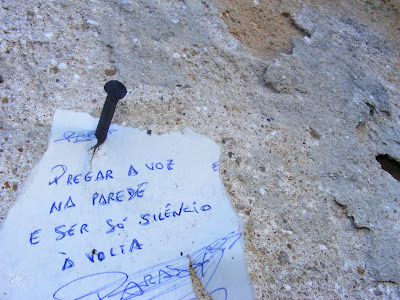 PREGAR A VOZ
NA PAREDE
E SER SÓ SILÊNCIO
À VOLTA